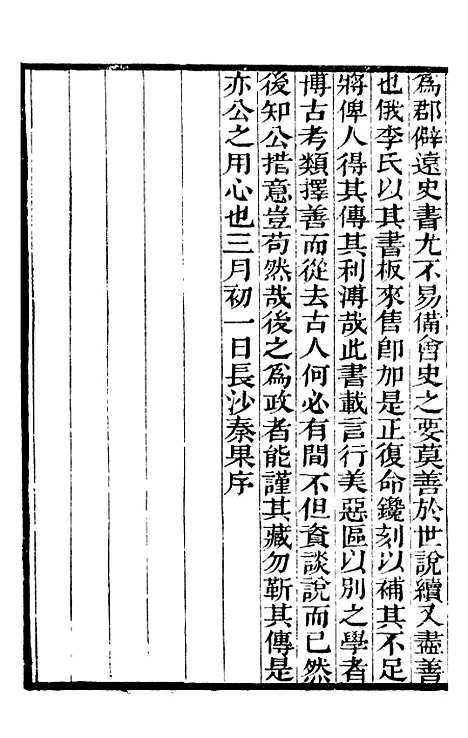 為郡僻遠史書尤不易備會史之要莫善於世說續又盡善
也俄李氏以其書板來售卽加是正復命鑱刻以補其不足
將俾人得其傳其利溥哉此書載言行美惡區以別之學者
博古考類擇善而從去古人何必有間不但資談說而已然
後知公措意豈苟然哉後之為政者能謹其藏勿靳其傳是
亦公之用心也三月初一日長沙秦果序